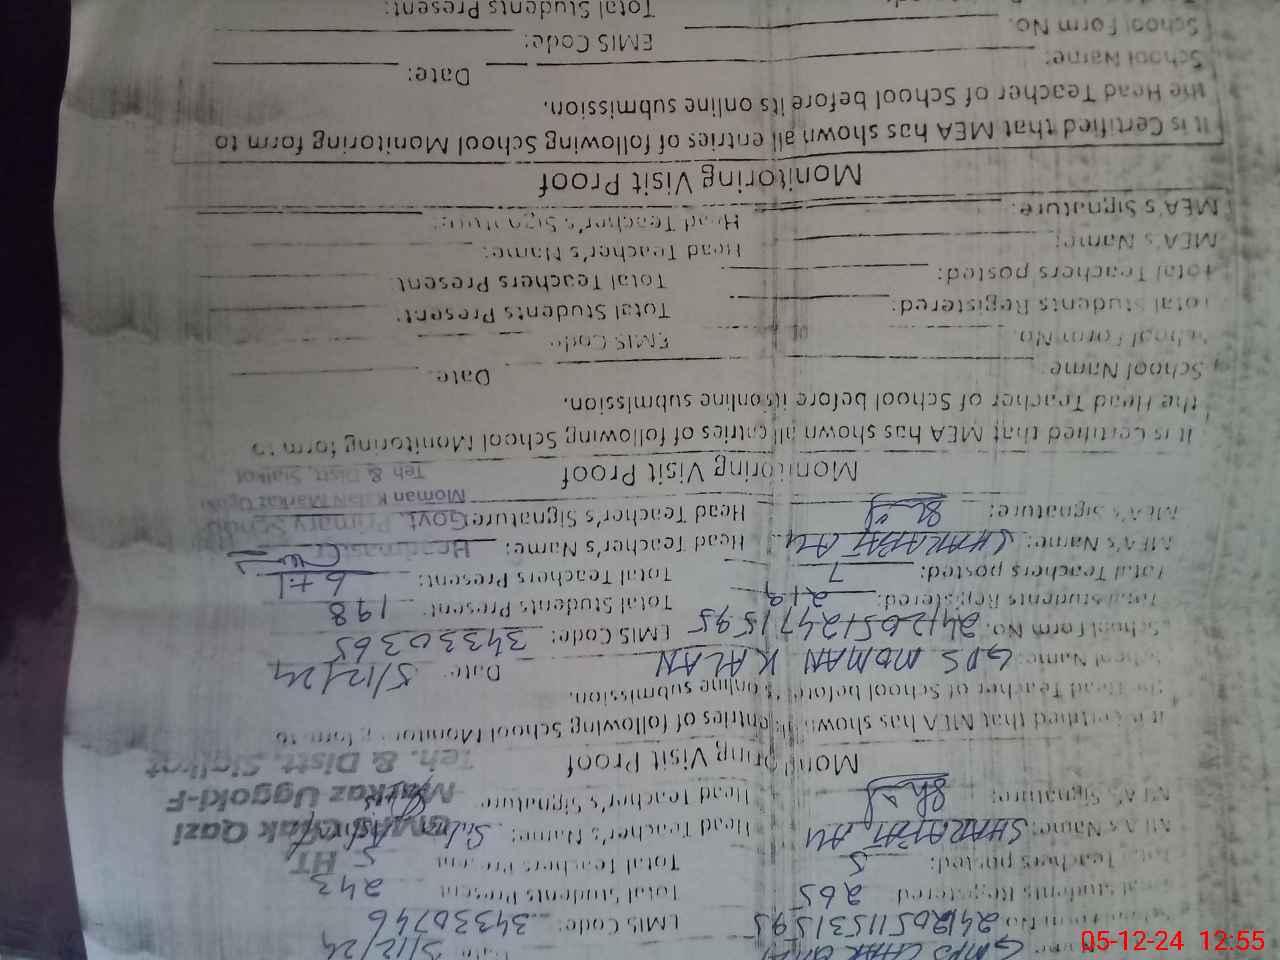 GMPS CHAK QAZI 5/12/24
School Form No. 24120511531595 EMIS Code: 34330746
Total students Registered 265 Total Students Present 243
Total Teachers posted: 5 Total Teachers Present 5
MEA's Name: SHARAFAT ALI Head Teacher's Name:
HT
Chak Qazi
MEA's Signature: Head Teacher's Signature
Markaz Uggoki-F
Teh. & Distt. Sialkot
Monitoring Visit Proof
It is Certified that MEA has shown all entries of following School Monitoring form to
the Head Teacher of School before its online submission.
School Name: GPS MOMAN KALAN Date: 5/12/24
School Form No. 24120512471595 EMIS Code: 34330365
Total students Registered: 219 Total Students Present: 198
Total Teachers posted: 7 Total Teachers Present: 6+1
MEA's Name: SHARAFAT ALI Head Teacher's Name: Headmaster
MEA's Signature: Head Teacher's Signature Govt. Primary School
Moman Kalan Markaz Ugoki
Teh & Distt. Sialkot
Monitoring Visit Proof
It is Certified that MEA has shown all entries of following School Monitoring form to
the Head Teacher of School before its online submission.
School Name Date
School Form No. EMIS Code
Total Students Registered: Total Students Present
Total Teachers posted: Total Teachers Present
MEA's Name: Head Teacher's Name:
MEA's Signature: Head Teacher's Signature:
Monitoring Visit Proof
It is Certified that MEA has shown all entries of following School Monitoring form to
the Head Teacher of School before its online submission.
School Name: Date:
School Form No. EMIS Code:
Total Students Present:
05-12-24 12:55